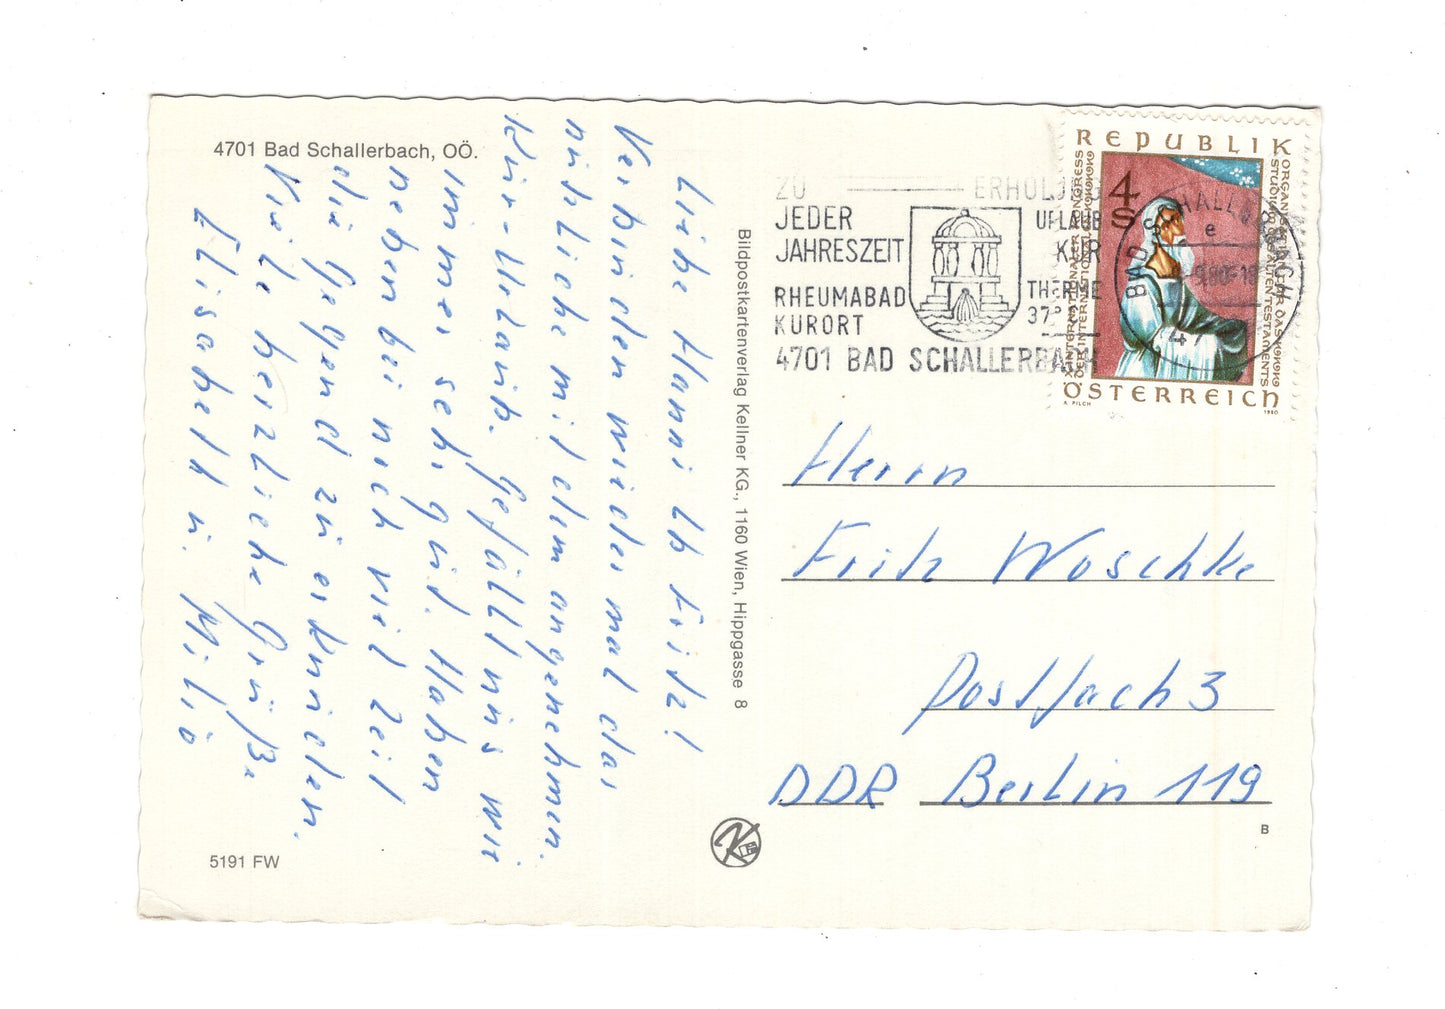 4701 Bad Schallerbach, OÖ.
Liebe Hanni Lb Fritz!
Verbinden wieder mal das
nützliche mit dem angenehmen.
Kur-Urlaub. Gefällt uns wie
immer sehr gut. Haben
nebenbei noch viel Zeit
die Gegend zu erkunden.
Viele herzliche Grüße
Elisabeth u.
5191 FW
Bildpostkartenverlag Kellner KG., 1160 Wien, Hippgasse 8
ZU
JEDER
JAHRESZEIT
RHEUMABAD
KURORT
4701 BAD SCHALLERBACH
ERHOLUNG
URLAUB
KUR
THERME
37°
BAD SCHALLERBACH
e
REPUBLIK
4
S
X. INTERNATIONALER KONGRESS
DER INTERNATIONALEN
ORGANISATION FÜR DAS
STUDIUM DES ALTEN TESTAMENTS
ÖSTERREICH
A. PILCH
1980
Herrn
Fritz Woschke
Postfach 3
DDR Berlin 119
B